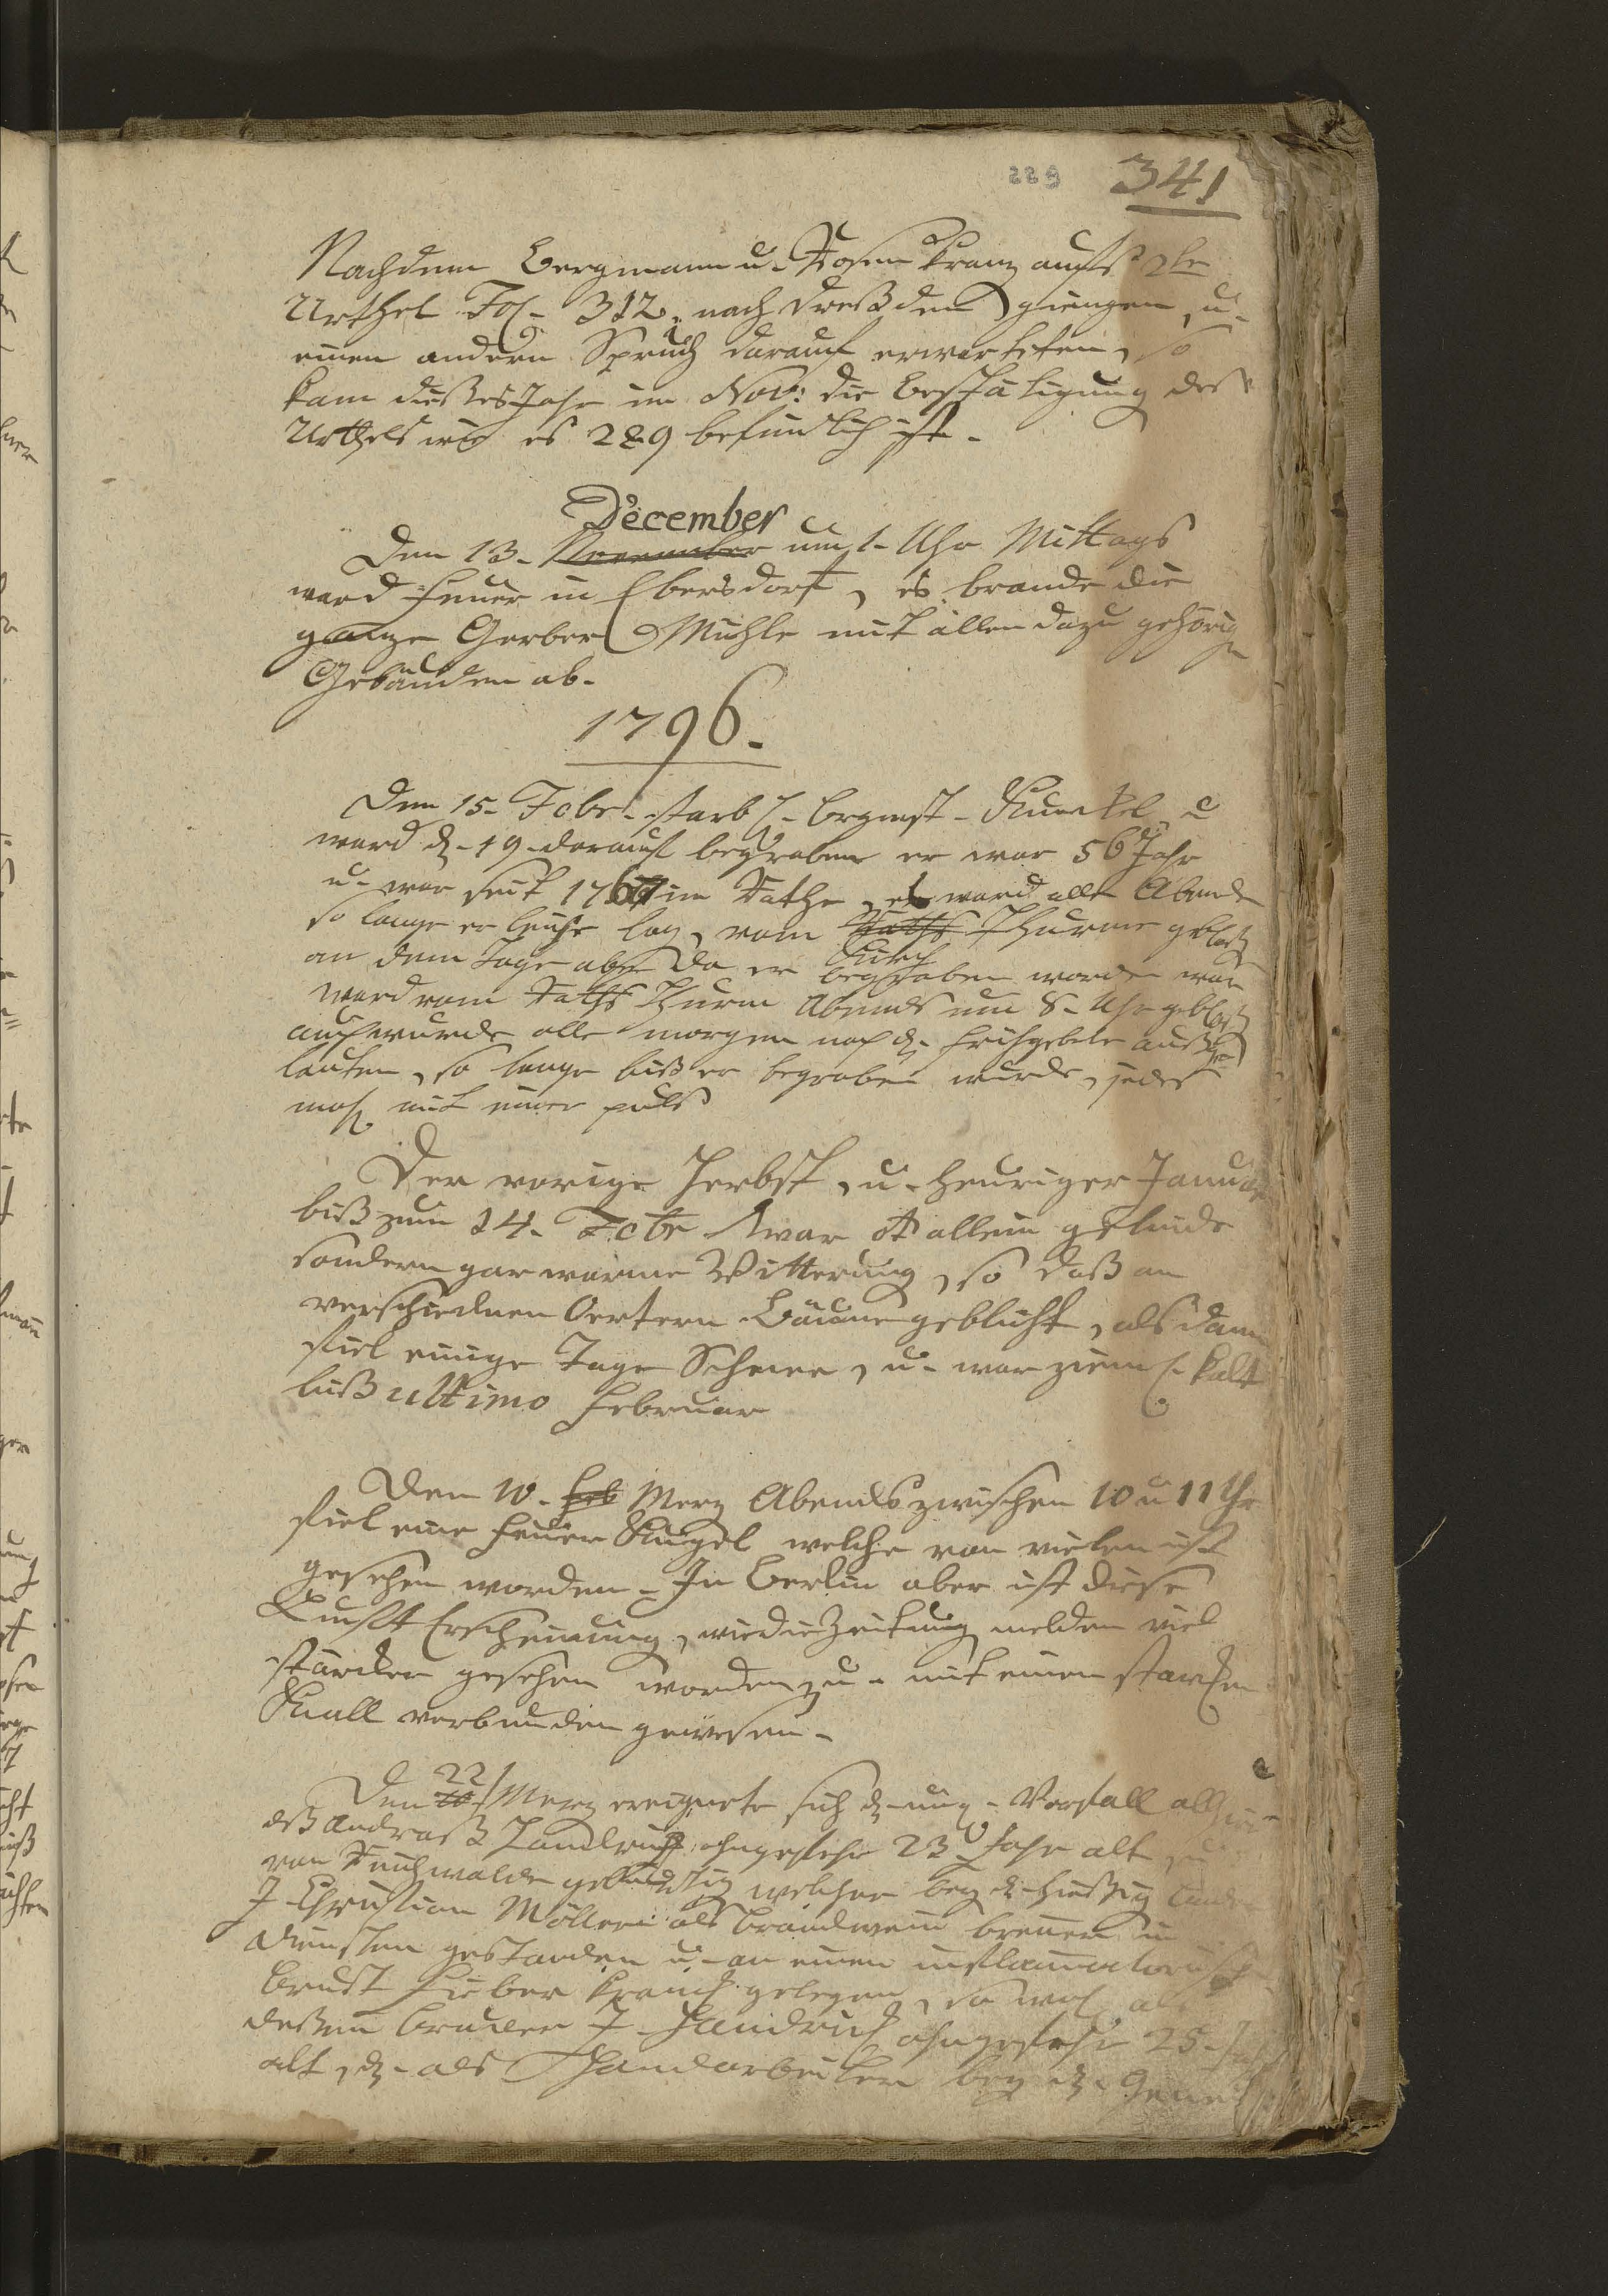 229 341
Nachdem Bergmann u. Rosenkranz aufs 2te
Urthel Fol. 312. nach Dreßden giengen, u.
einen andern Spruch darauf erwarteten, so
kam dießes Jahr im Nov: die Bestätigung des
Urthels wie es 289 befindlich ist.
December
Den 13. November um 1. Uhr Mittags
ward Feuer in Ebersdorf, es brande die
ganze Gerber Mühle mit allen dazu gehörig
Gebäuden ab.
1796.
Den 15. Febr. starb H. Bürgmst. Kunckel, u
ward d. 19. darauf begraben er war 56 Jahr
u. war seit 1767 im Rathe, es ward alle Abend
so lange er leiche lag, vom Raths Thurme geblaß
an dem Tage aber da er begraben worden war
ward vom Raths Thurm Abends um 8. Uhr geblaß
auch wurde alle morgen nach d. Frühgebete auß
lauten, so lange biß er begraben wurde, jedes
mahl mit einer puls
Der vorige Herbst, u. heuriger Januar
biß zum 14. Febr war nicht allein gelinde
sondern gar warme Witterung, so daß an
verschiednen Oertern Bäume geblüht, alsdann
fiel einige Tage Schnee, u. war zieml. kalt
biß ultimo Februar
Den 10. Feb Merz Abends zwischen 10 u 11 Uhr
fiel eine Feuer Kugel welche von vielen ist
gesehen worden. In Berlin aber ist diese
Lufft Erscheinung, wie die Zeitung melden viel
stärcker gesehen worden, u. mit einem starcken
Knall verbunden gewesen.
22
Den Merz ereignete sich d. Vorfall alhier
dß Andreaß Handrich ohngefehr 23 Jahr alt
von gebürtig welcher bey d. hießig
J. Christian Möllern als Brandwein brenner in
Diensten gestanden u. an einem inflammatorisch
Brust Fieber kranck gelegen, so wohl als
deßen Bruder J. Handrich ohngefehr 25. Jahr
alt, d. als Handarbeiter bey d.